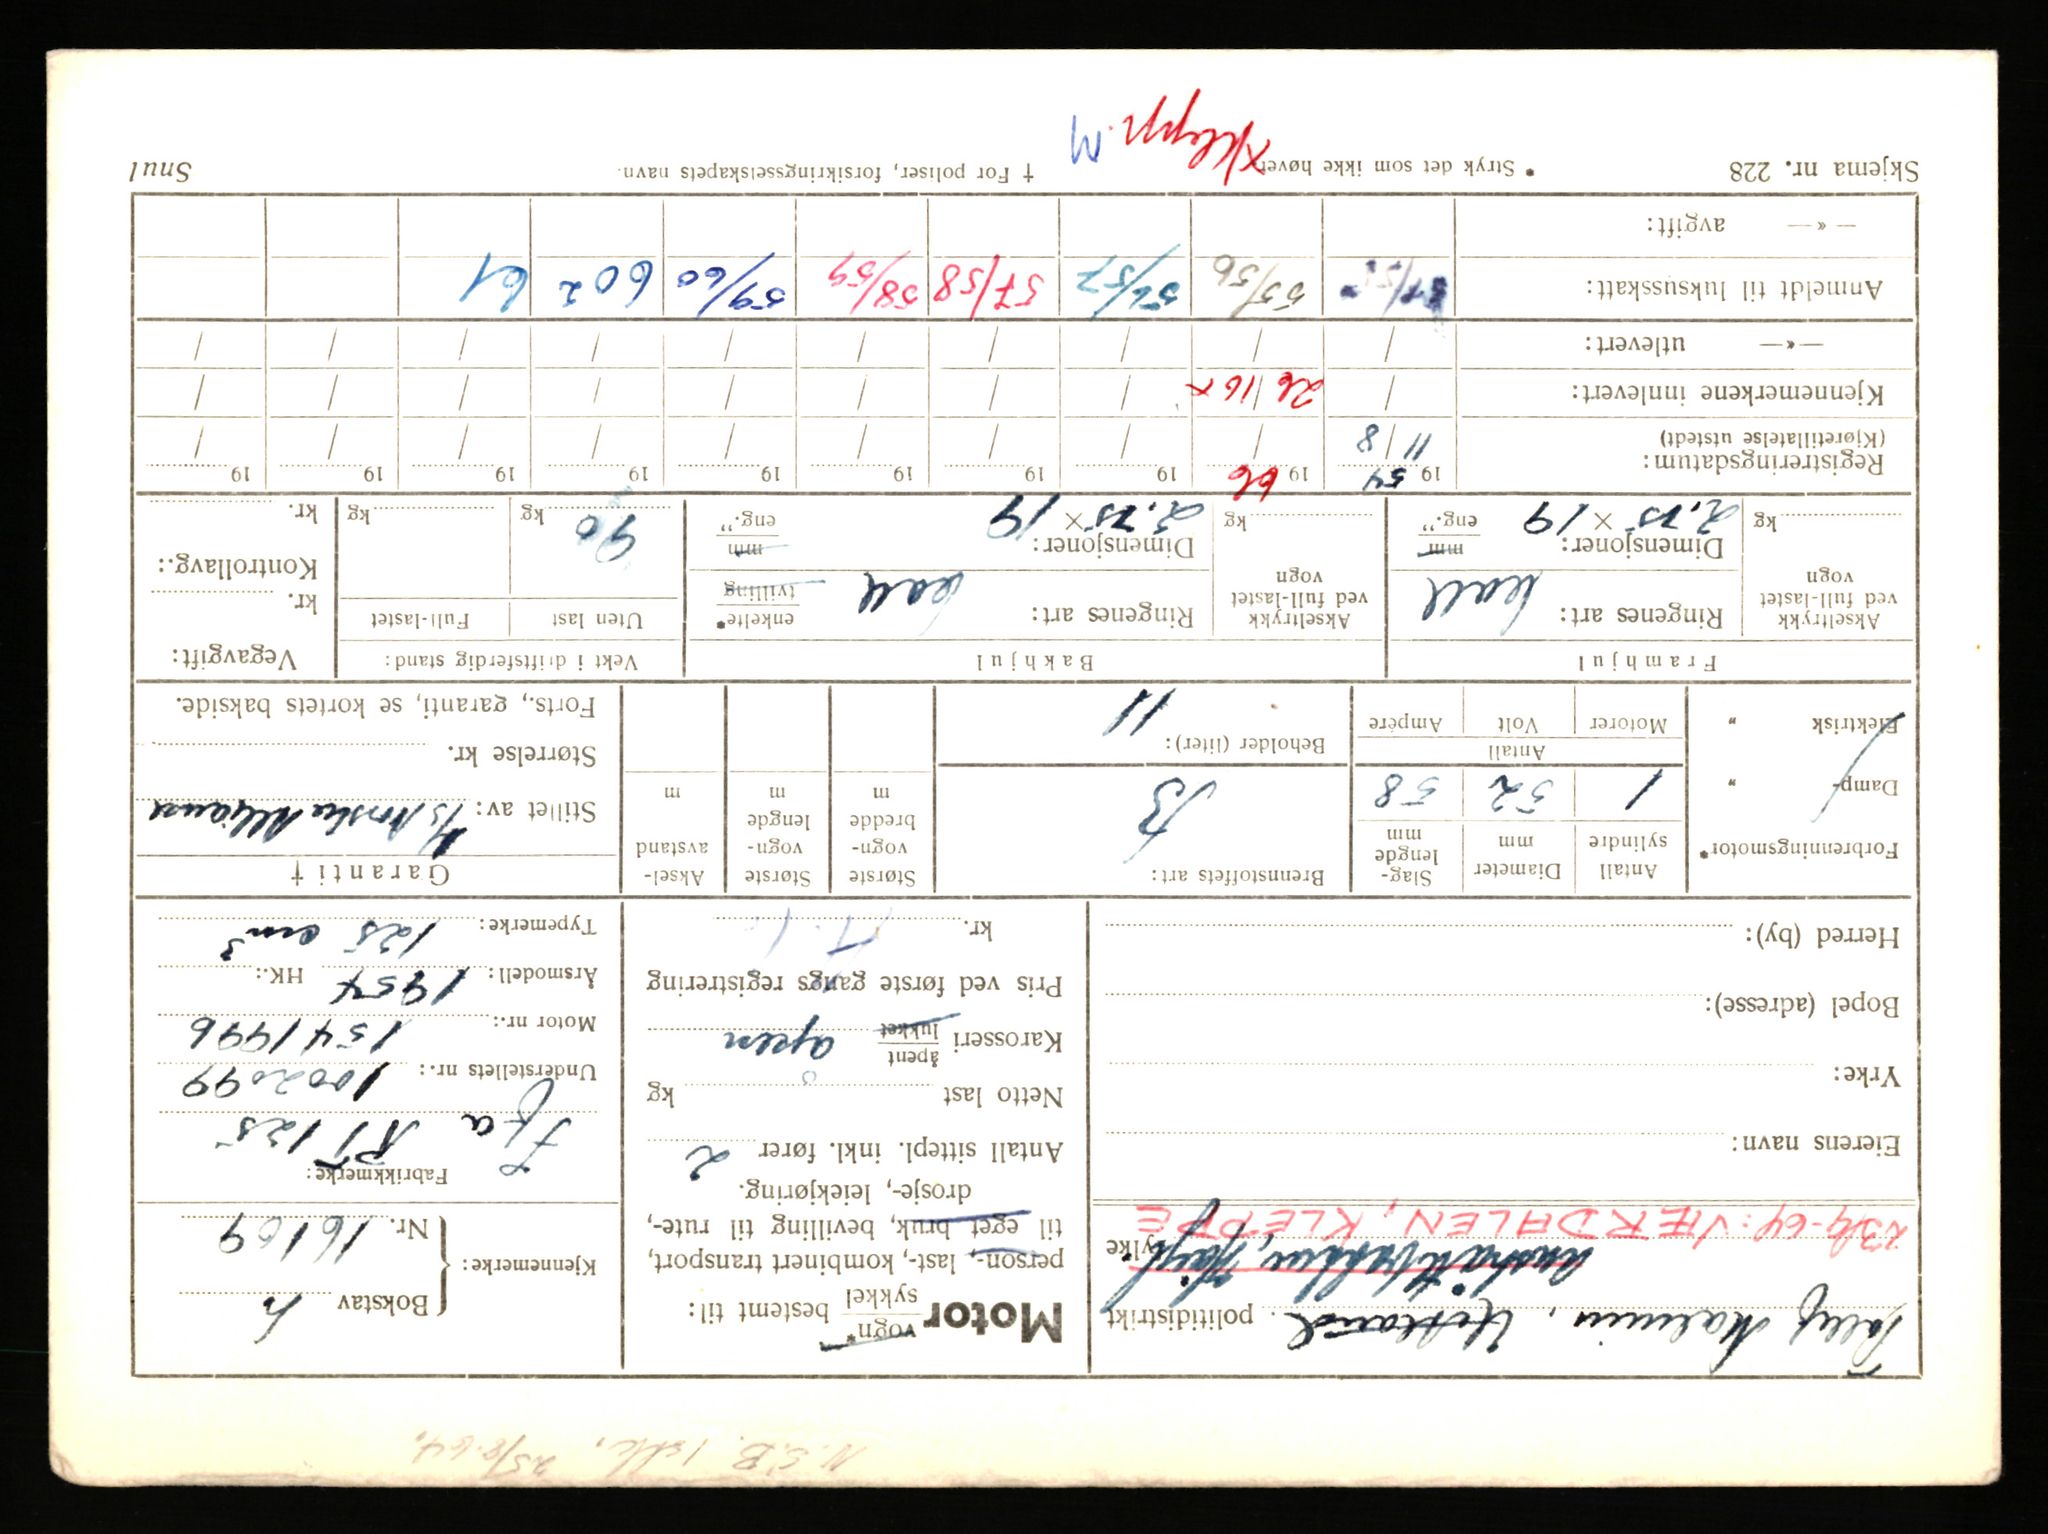 N.S.B. 25/8.64.
Malmin, politidistrikt
fylke
23/9-64: VERDALEN, KLEPPE
Eierens navn:
Yrke:
Bopel (adresse):
Herred (by):
Motor vogn* sykkel bestemt til:
person-, last-, kombinert transport,
til eget bruk, bevilling til rute-,
drosje-, leiekjøring.
Antall sittepl. inkl. fører 2
Netto last kg
Karosseri åpent lukket åpen
Pris ved første gangs registrering
kr.
Kjennemerke: { Bokstav
Nr. 16109
Fabrikkmerke:
RT 125
Understellets nr.: 1002099
Motor nr.: 1541996
Årsmodell: 1954 HK.:
Typemerke: 125 cm3
Forbrenningsmotor*
Damp- "
Elektrisk "
Antall sylindre 1
Diameter mm 52
Slaglengde mm 58
Antall
Motorer Volt Ampére
Brennstoffets art: B
Beholder (liter): 11
Største vogn-bredde m
Største vogn-lengde m
Aksel-avstand m
Garanti †
Stillet av: A/S Norske Alliance
Størrelse kr.
Forts., garanti, se kortets bakside.
Framhjul
Akseltrykk ved full-lastet vogn kg
Ringenes art:
Dimensjoner: 2.75 × 19 mm eng."
Bakhjul
Akseltrykk ved full-lastet vogn kg
Ringenes art: enkelte* tvilling
Dimensjoner: 2.75 × 19 mm eng."
Vekt i driftsferdig stand:
Uten last Full-lastet
90 kg kg
Vegavgift:
kr.
Kontrollavg.:
kr.
Registreringsdatum: 1954 1966 19 19 19 19 19 19 19 19
(Kjøretillatelse utstedt) 11/8 / / / / / / / / /
Kjennemerkene innlevert: / 26/16 x / / / / / / / /
—«— utlevert: / / / / / / / / / /
Anmeldt til luksusskatt: 55/56 56/57 57/58 58/59 59/60 602 61
—«— avgift:
Skjema nr. 228 * Stryk det som ikke høver. † For poliser, forsikringsselskapets navn. Snul
x Klepp. M